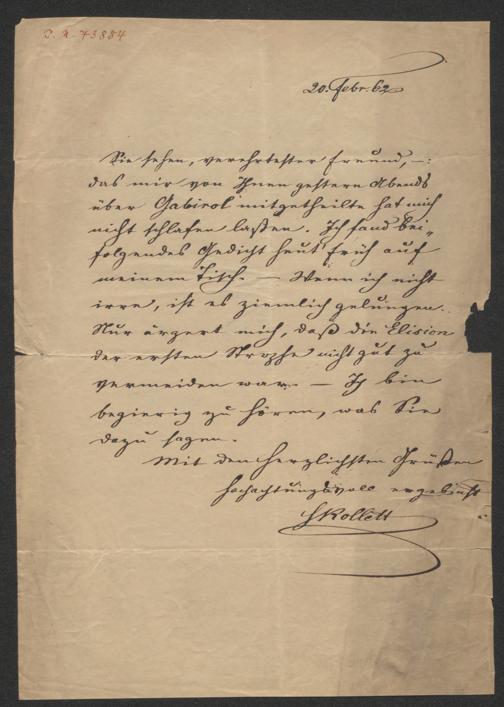 I. N. 73884
20. Febr. 62
Sie sehen, verehrtester Freund, —:
das mir von Ihnen gestern Abends
über Gabirol mitgetheilte hat mich
nicht schlafen laßen. Ich fand bei-
folgendes Gedicht heut' früh auf
meinem Tisch. — Wenn ich nicht
irre, ist es ziemlich gelungen.
Nur ärgert mich, daß die Elision
der ersten Strophe nicht gut zu
vermeiden war. — Ich bin
begierig zu hören, was Sie
dazu sagen.
Mit den herzlichsten Grüßen
hochachtungsvoll ergebenst
HRollett